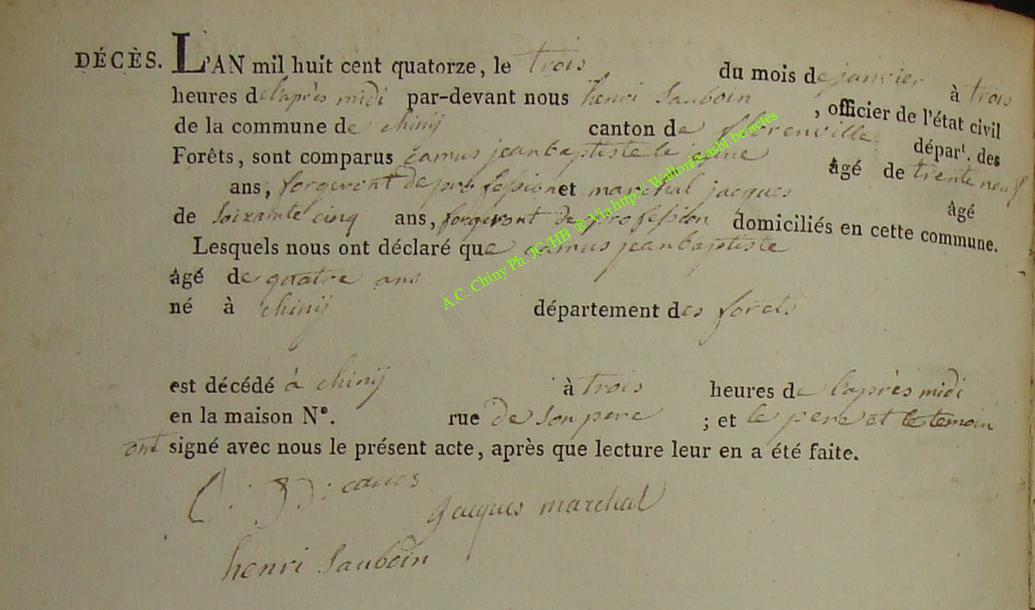 DÉCÈS. L'AN mil huit cent quatorze, le trois du mois de janvier à trois
heures de l'après midi par-devant nous henri Sauboin , officier de l'état civil
de la commune de chinÿ canton de florenville départ. des
Forêts, sont comparus camus jeanbaptiste le jeune âgé de trente neuf
ans, forgeront de profession et marechal jacques âgé
de Soixante Cinq ans, forgeront de profession domiciliés en cette commune.
Lesquels nous ont déclaré que camus jeanbaptiste
âgé de quatre ans
né à chinÿ département des forets
est décédé à chinÿ à trois heures de l'après midi
en la maison N°. rue de son pere ; et le pere et le temoin
ont signé avec nous le présent acte, après que lecture leur en a été faite.
jacques marchal
henri Sauboin
A.C. Chiny Ph. JC/HB ® Via http:\\ Wallonia-asbl.be/actes